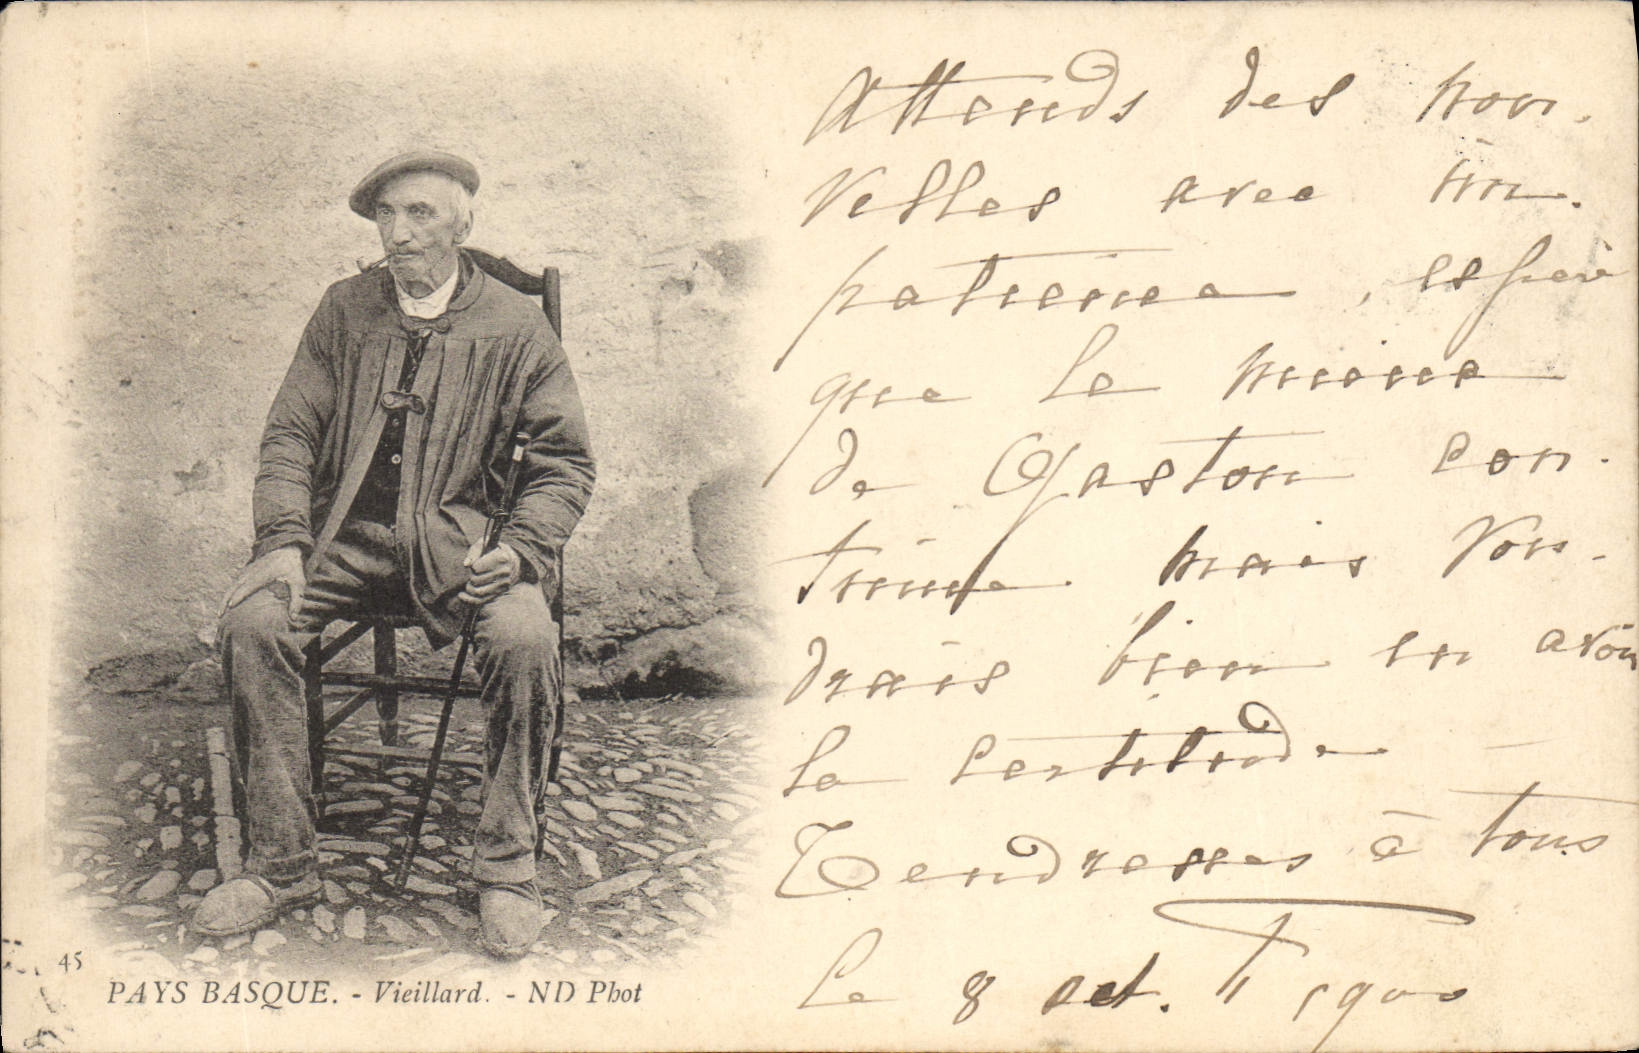 Attends des nou-
velles avec im-
patience, espère
que le mieux
de Gaston con-
tinue mais vou-
drais bien en avoir
la certitude —
Tendresses à tous
T
Le 8 oct. 1900
45
PAYS BASQUE. - Vieillard. - ND Phot